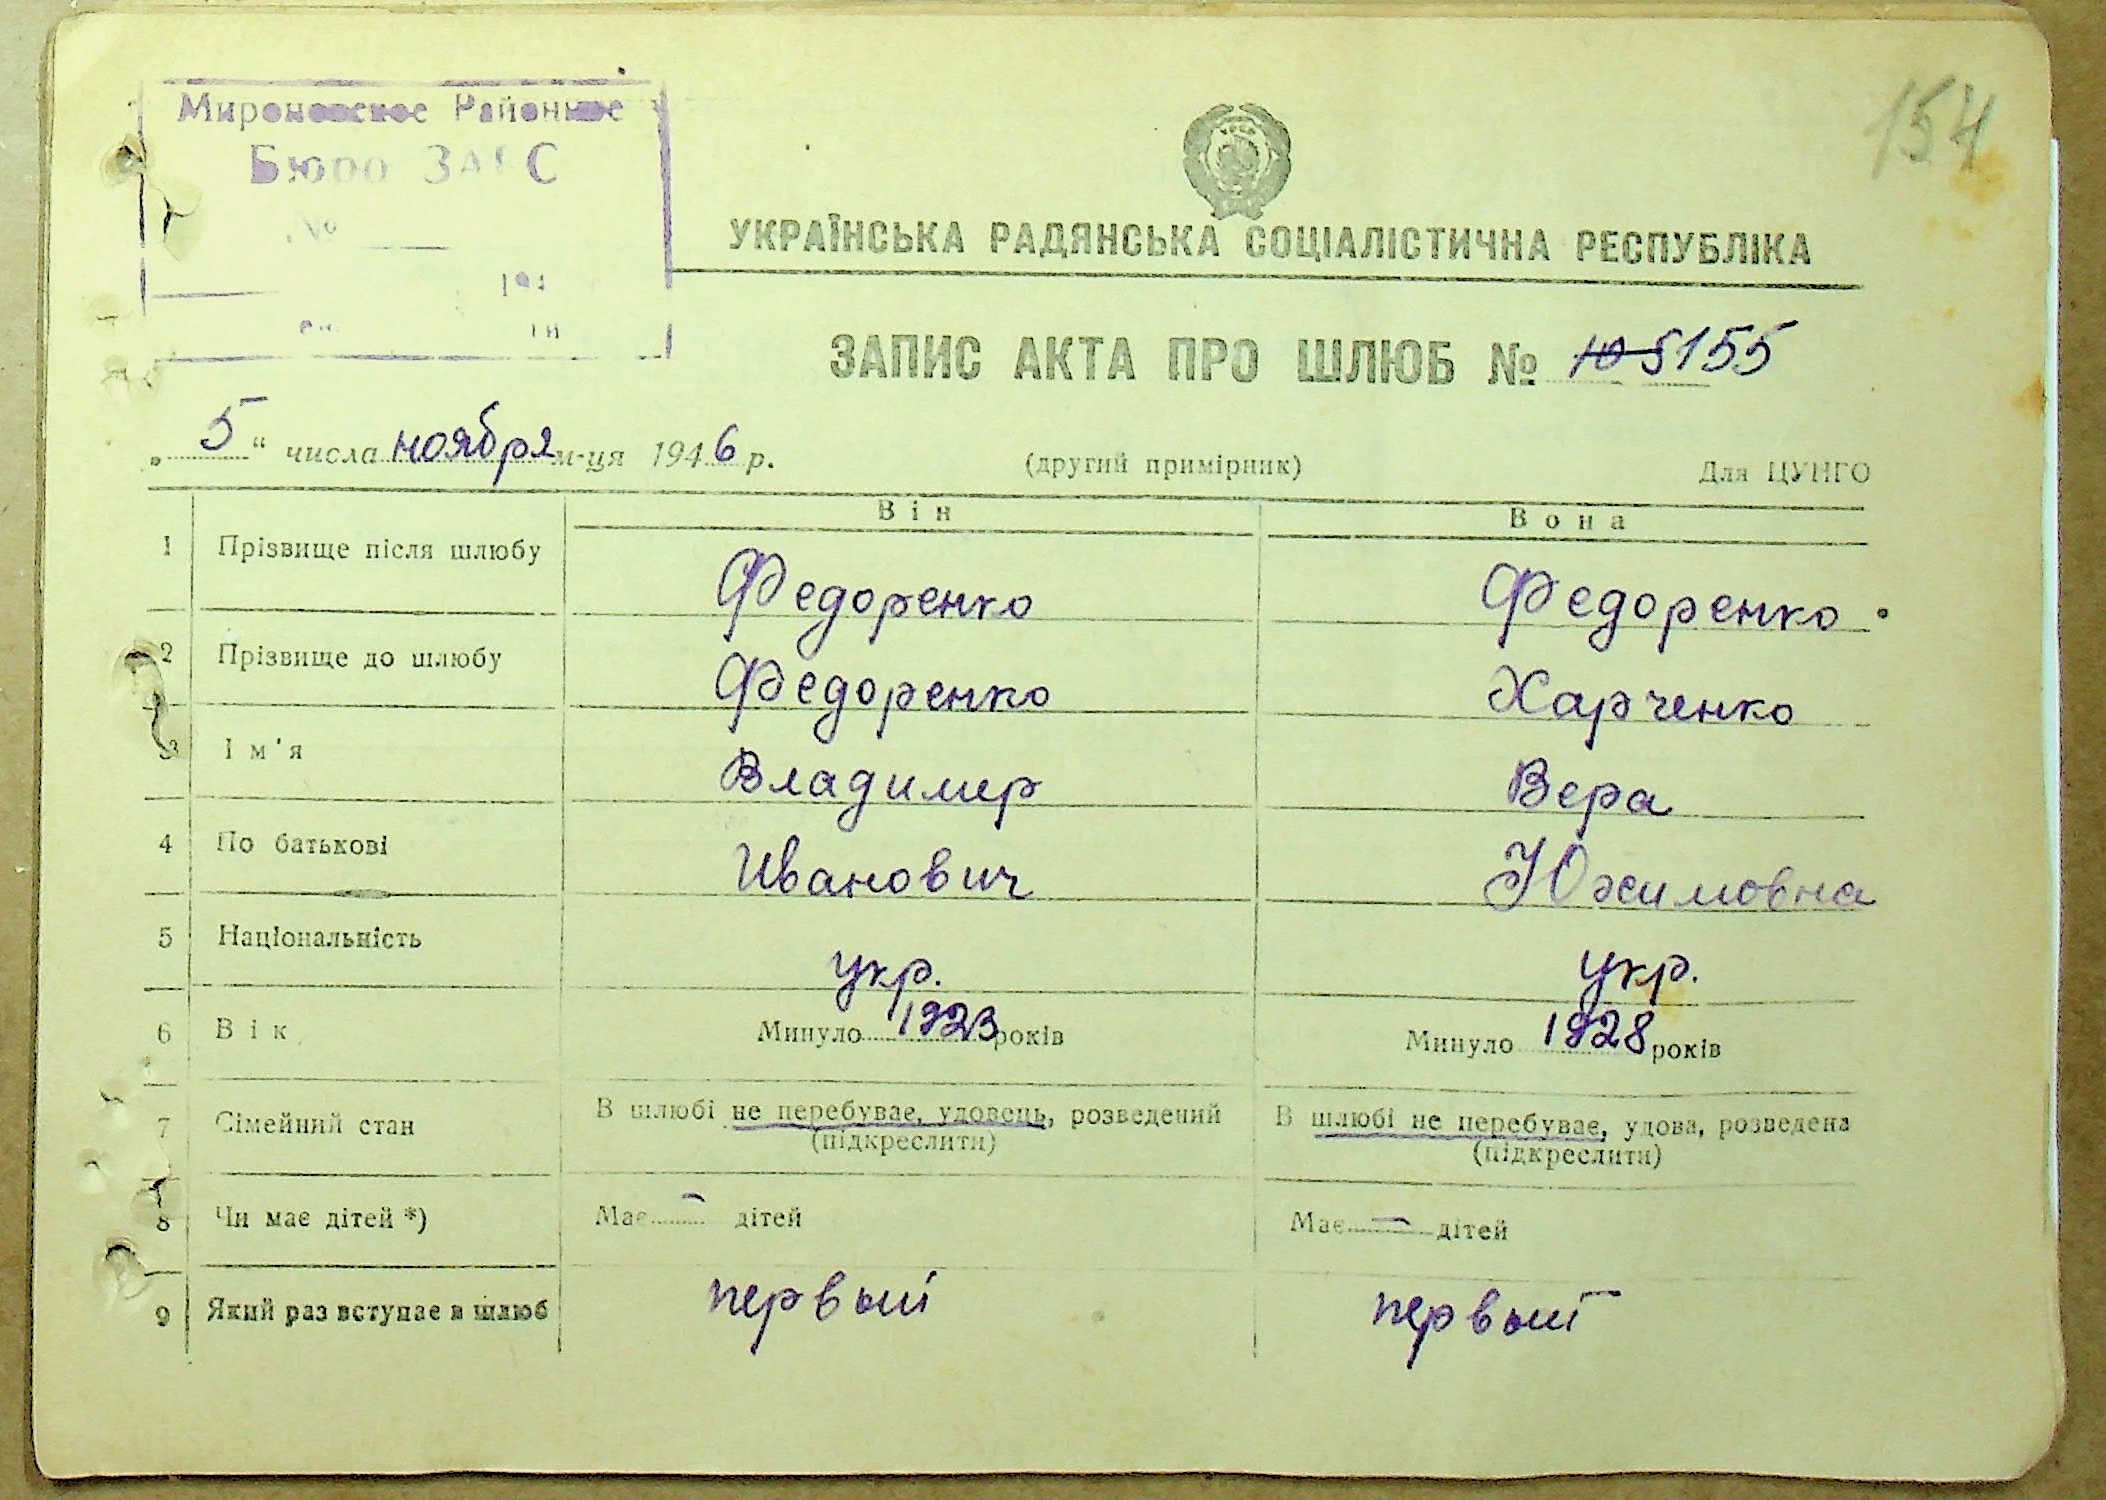 154
Мироновское Районное
Бюро ЗАГС
№
194
УКРАЇНСЬКА РАДЯНСЬКА СОЦІАЛІСТИЧНА РЕСПУБЛІКА
ЗАПИС АКТА ПРО ШЛЮБ № 105 155
„ 5 “ числа ноября м-ця 1946 р. (другий примірник) Для ЦУНГО
Він Вона
1 Прізвище після шлюбу Федоренко Федоренко
2 Прізвище до шлюбу Федоренко Харченко
3 Ім'я Владимер Вера
4 По батькові Иванович Юхимовна
5 Національність укр. укр.
6 Вік Минуло 1923 років Минуло 1928 років
7 Сімейний стан В шлюбі не перебуває, удовець, розведений В шлюбі не перебуває, удова, розведена
(підкреслити) (підкреслити)
8 Чи має дітей *) Має — дітей Має — дітей
9 Який раз вступає в шлюб первый первый